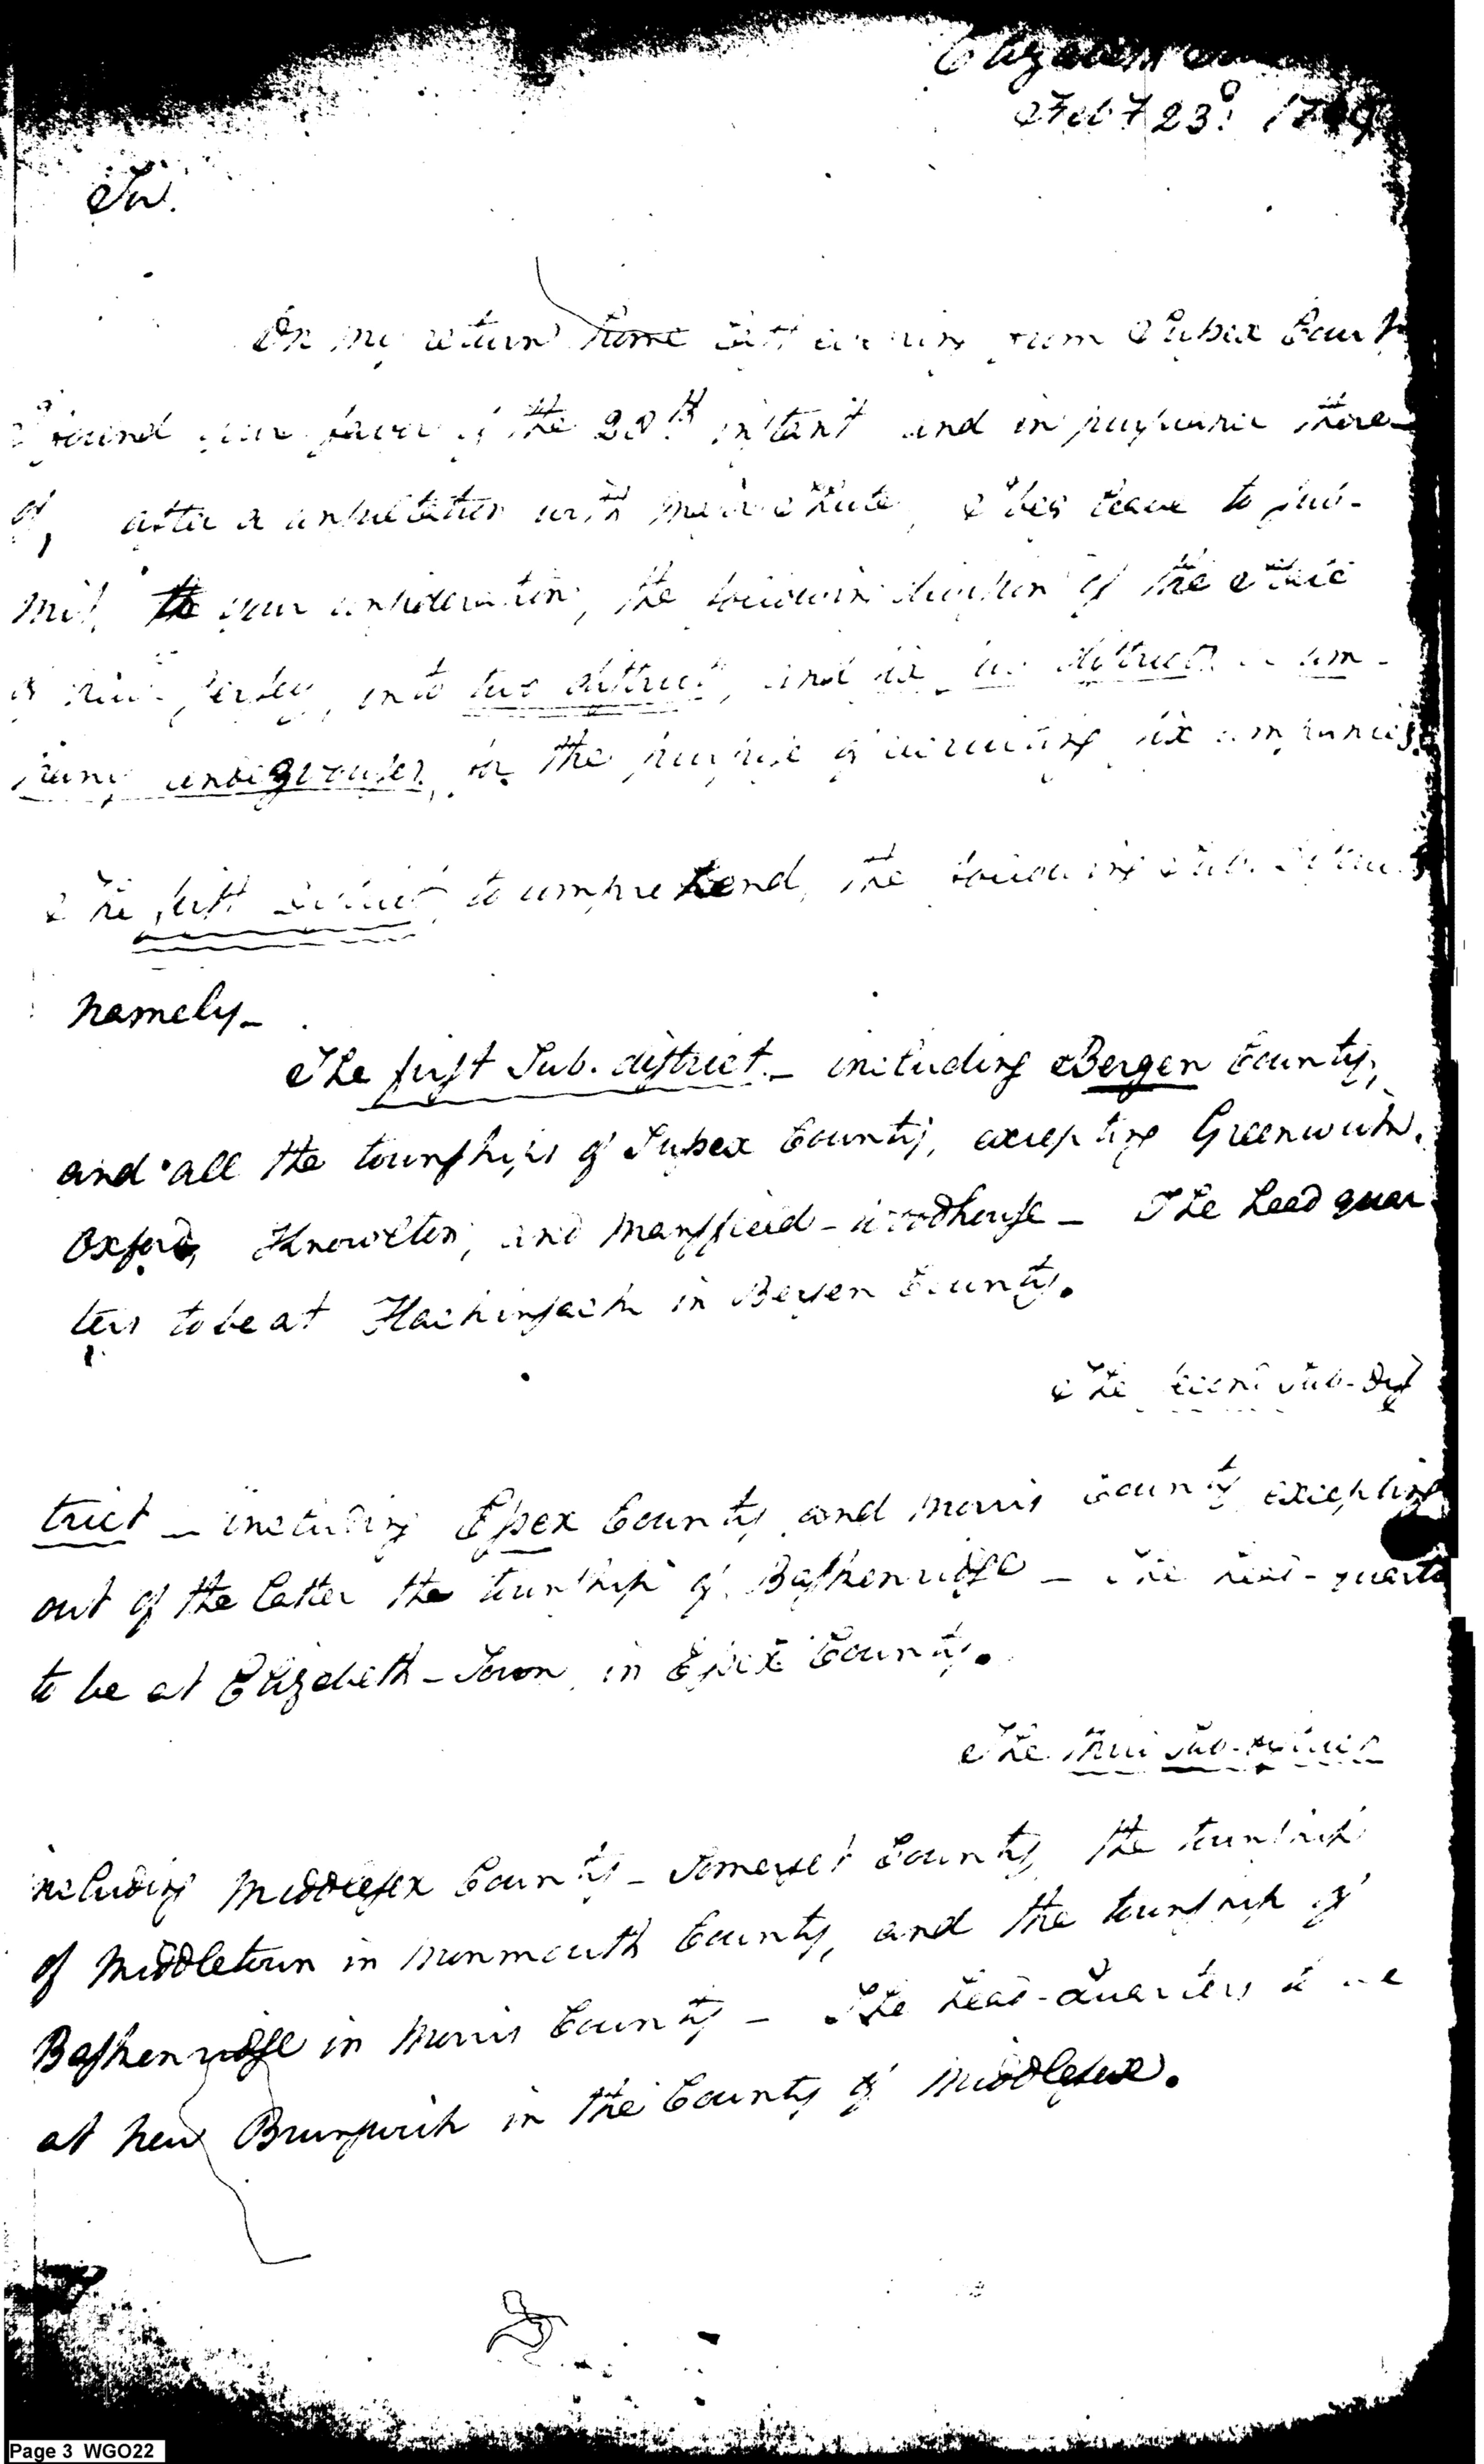 Elizabeth Town
Feb.y 23d. 1799
Sir.
On my return home last evening from Sussex Court
I found your favor of the 20th instant and in pursuance there-
of, after a consultation with Major Shute, I beg leave to sub-
mit to your consideration, the following division of the State
of New Jersey, into two district, and six sub districts
for the purpose of recruiting six companies.
The first district to comprehend, the following Sub. districts
namely-
The first Sub. district - including Bergen County,
and all the townships of Sussex County, excepting Greenwich,
Oxford, Knowlton, and Mansfield-woodhouse - The head quar
ters to be at Hackinsack in Bergen County.
The second Sub-Dis
trict - including Essex County and Morris County excepting
out of the latter the township of Baskenridge - The head-quarters
to be at Elizabeth-Town in Essex County.
The third Sub-district
including Middlesex County - Somerset County, the township
of Middletown in Monmouth County, and the township of
Baskenridge in Morris County - The Head-Quarters to be
at New Brunswick in the County of Middlesex.
Page 3 WGO22